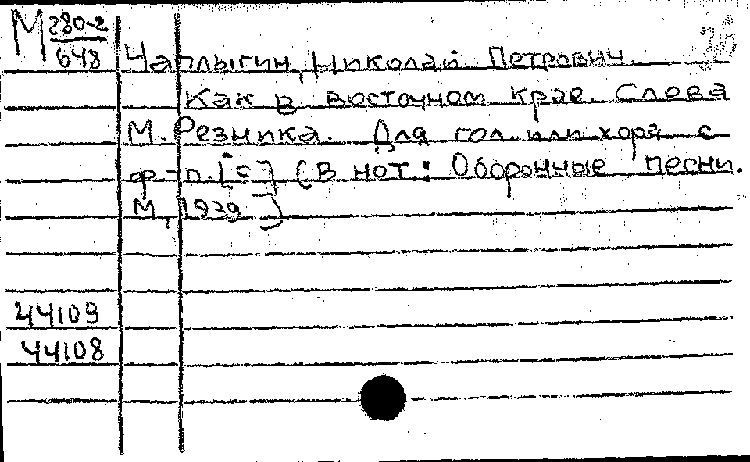 М 280-2
648
Чаплыгин, Николай Петрович
Как в восточном крае. Слова
М. Резника. Для гол. или хора с
ф-п. [c] (В нот: Оборонные песни.
М, 1939)
44109
44108